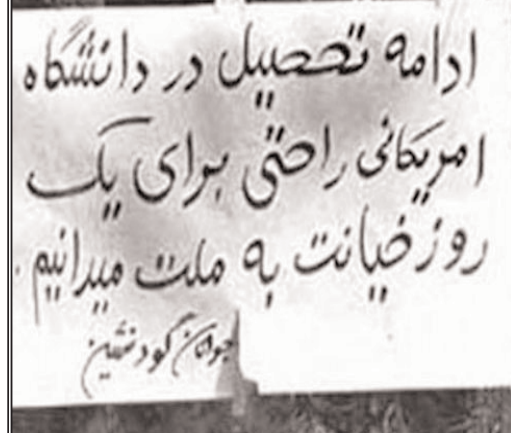 ادامه تحصیل در دانشگاه
امریکائی راحتی برای یک
روز خیانت به ملت میدانیم.
جوانان گودنشین